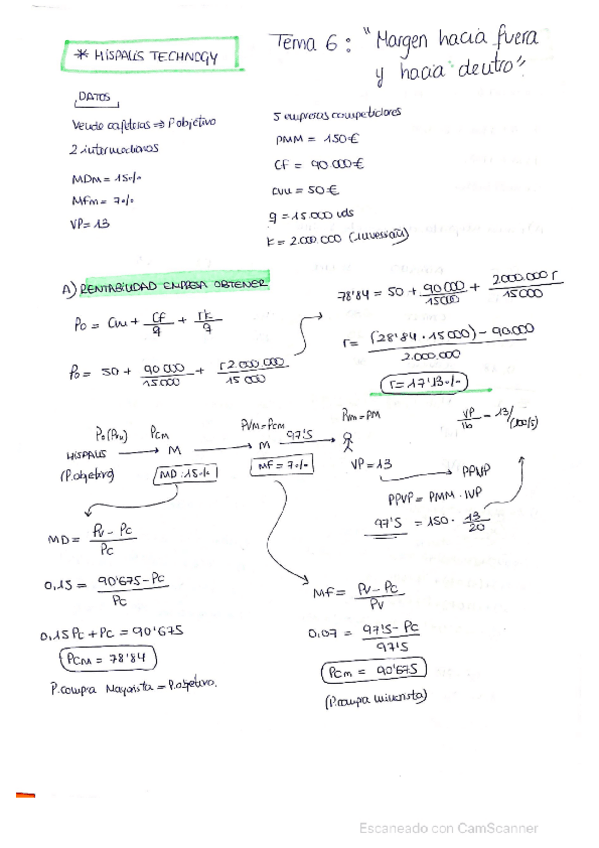 * HISPALIS TECHNOGY
Tema 6: "Margen hacia fuera
y hacia dentro".
DATOS
Vendo cafeteras => P objetivo
2 intermediarios
MDM = 15%
MFm = 7%
VP = 13
5 empresas competidores
PMM = 150€
CF = 90.000€
CVU = 50€
q = 15.000 uds
K = 2.000.000 (inversión)
A) RENTABILIDAD EMPRESA OBTENER
Po = Cvu + CF/q + rK/q
Po = 50 + 90000/15000 + r2.000.000/15000
78'84 = 50 + 90000/15000 + 2000.000r/15000
r = (28'84 · 15000) - 90.000/2.000.000
r = 17'13%
HISPALIS
Po (Pvu)
(P.objetivo)
PCM
M
MD: 15%
PVM = PCm
M
MF = 7%
97'5
PVm = PM
VP = 13
PPVP
VP/Ib = 13/(100/5)
PPVP = PMM · IVP
97'5 = 150 · 13/20
MD = Pv - Pc/Pc
0,15 = 90'675 - Pc/Pc
0,15Pc + Pc = 90'675
PCM = 78'84
P.compra Mayorista = P.objetivo.
MF = Pv - Pc/Pv
0,07 = 97'5 - Pc/97'5
PCm = 90'675
(P.compra minorista)
Escaneado con CamScanner